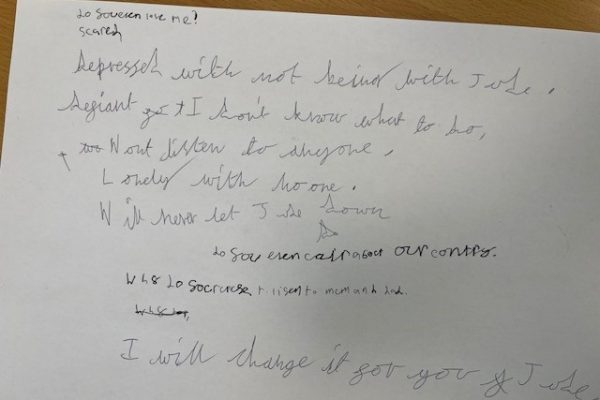 do you even love me?
scared
Depressed with not being with Jude,
Defiant yet I don't know what to do,
Wont listen to anyone,
Lonely with no one.
Will never let Jude down
do you even care about our
Why do you to lisen to mum and dad.
I will change it for you Jude.